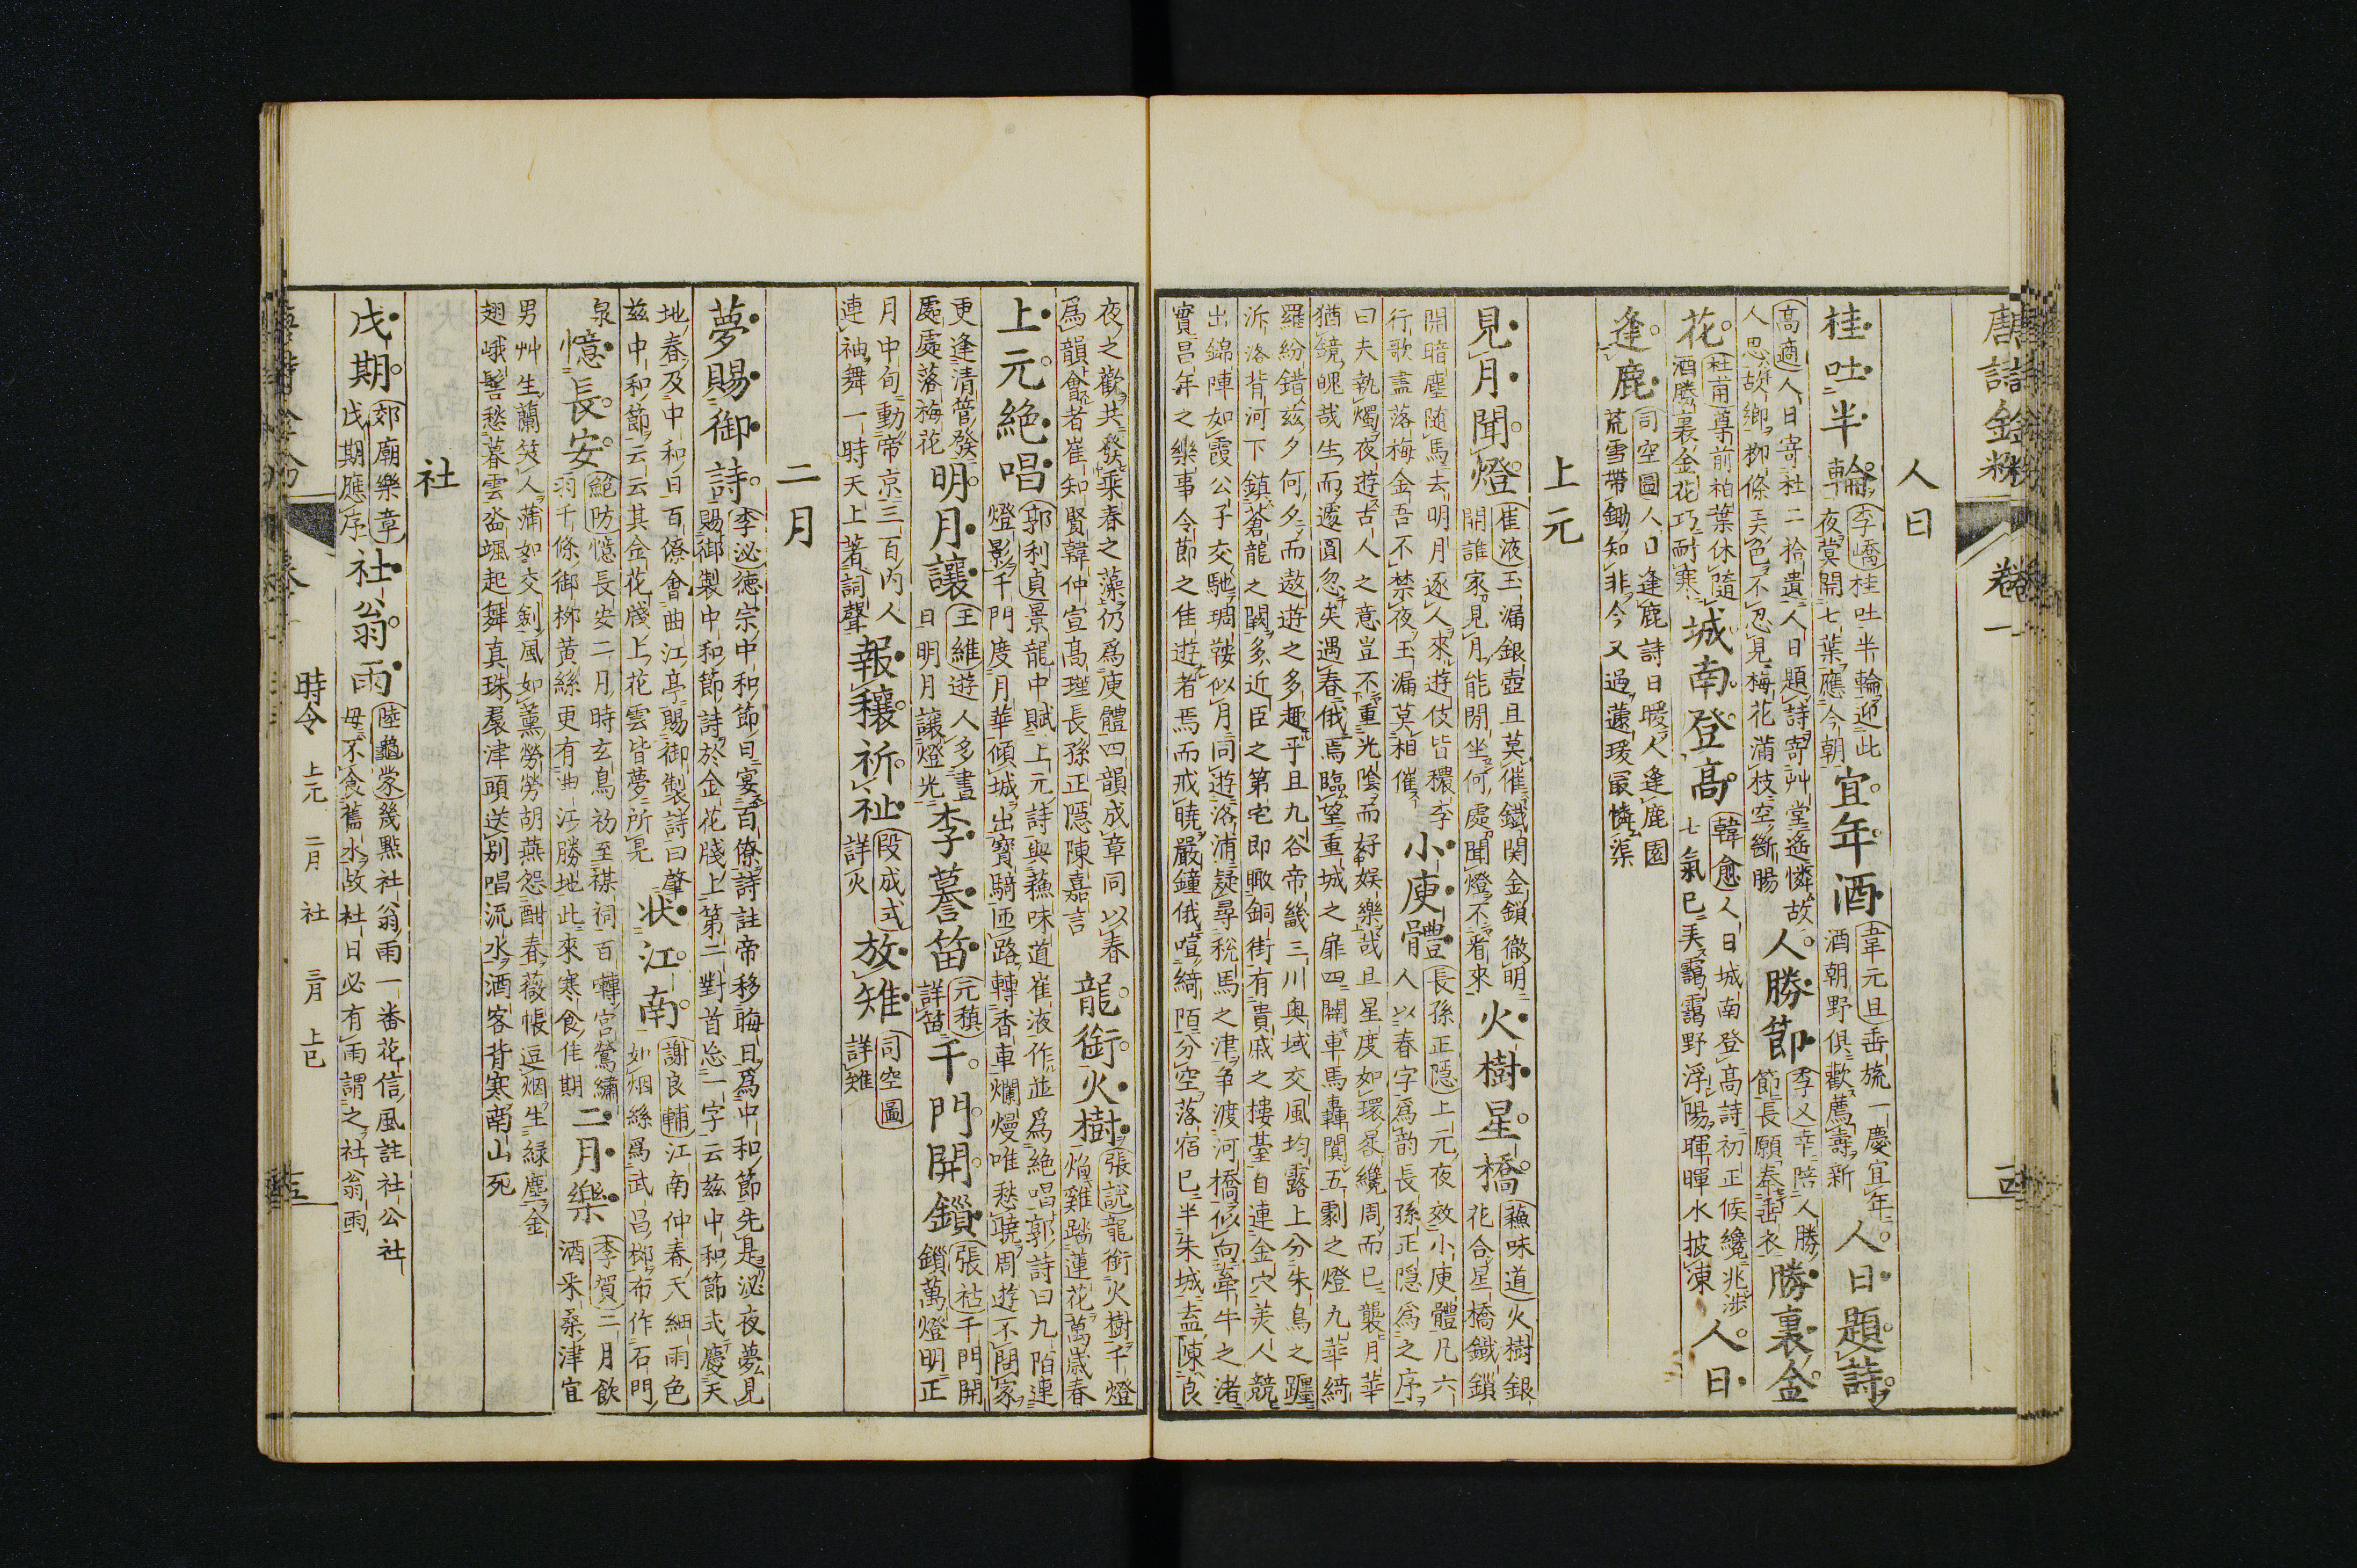 唐詩金粉 卷一
人日
桂吐半輪 李嶠桂吐半輪迎此夜蓂開七葉應今朝 宜年酒 韋元旦垂旒一慶宜年酒朝野俱歡薦壽新 人日題詩
高適人日寄杜二拾遺人日題詩寄艸堂遙憐故人思故鄉柳條弄色不忍見梅花滿枝空斷腸 人勝節 李乂幸陪人勝節長願奉垂衣 勝裏金
花 杜甫尊前柏葉休隨酒勝裏金花巧耐寒 城南登高 韓愈人日城南登高詩初正候纔兆涉七氣已弄靄靄野浮陽暉暉水披凍 人日
逢鹿 司空圖人日逢鹿詩日曖人逢鹿園荒雪帶鋤知非今又過蘧瑗最憐渠
上元
見月聞燈 崔液玉漏銀壺且莫催鐵関金鎖徹明開誰家見月能閒坐何處聞燈不看來 火樹星橋 蘇味道火樹銀花合星橋鐵鎖
開暗塵随馬去明月逐人來遊伎皆穠李行歌盡落梅金吾不禁夜玉漏莫相催 小庾體 長孫正隱上元夜效小庾體凡六人以春字爲韵長孫正隱爲之序
曰夫執燭夜遊古人之意豈不重光陰而好娛樂哉且星度如環晷纔周而已襲月華猶鏡魄哉生而遽圓忽夫遇春俄焉臨望重城之扉四闢車馬轟闐五劇之燈九華綺
羅紛錯兹夕何夕而遨遊之多趣乎且九谷帝畿三川奥域交風均露上分朱鳥之躔泝洛背河下鎮蒼龍之闕多近臣之第宅即瞰銅街有貴戚之樓臺自連金穴美人競
出錦陣如霞公子交馳琱鞍似月同遊洛浦疑尋稅馬之津争渡河橋似向牽牛之渚實昌年之樂事令節之佳遊者焉而戒曉嚴鐘俄喧綺陌分空落宿已半朱城盍陳良
夜之歡共發乘春之藻仍爲庾體四韻成章同以春爲韻會者崔知賢韓仲宣高瑾長孫正隱陳嘉言 龍銜火樹 張説龍銜火樹千燈焔雞踏蓮花萬歳春
上元絶唱 郭利貞景龍中賦上元詩與蘇味道崔液作並爲絶唱郭詩曰九陌連燈影千門度月華傾城出寶騎匝路轉香車爛熳唯愁曉周遊不問家
更逢清管發處處落梅花 明月讓 王維遊人多晝日明月讓燈光 李謩笛 元稹詳笛 千門開鎖 張祜千門開鎖萬燈明正
月中旬動帝京三百内人連袖舞一時天上著詞聲 報穰祈祉 段成式詳火 放雉 司空圖詳雉
二月
夢賜御詩 李泌徳宗中和節日宴百僚詩註帝移晦日爲中和節先是泌夜夢見賜御製中和節詩於金花牋上第二對首忘一字云兹中和節式慶天
地春及中和日百僚會曲江亭賜御製詩曰肇兹中和節云云其金花牋上花雲皆夢所見 状江南 謝良輔江南仲春天細雨色如烟絲爲武昌柳布作石門
泉 憶長安 鮑防憶長安二月時玄鳥初至禖祠百囀宮鶯繡羽千條御柳黄絲更有曲江勝地此來寒食佳期 二月樂 李賀二月飲酒采桑津宜
男艸生蘭笑人蒲如交劍風如薰勞勞胡燕怨酣春薇帳逗烟生緑塵金翅峨髻愁暮雲沓颯起舞真珠裙津頭送别唱流水酒客背寒南山死
社
戊期 郊廟樂章戊期應序 社翁雨 陸龜蒙幾點社翁雨一番花信風註社公社母不食舊水故社日必有雨謂之社翁雨
時令 上元 二月 社 三月 上巳